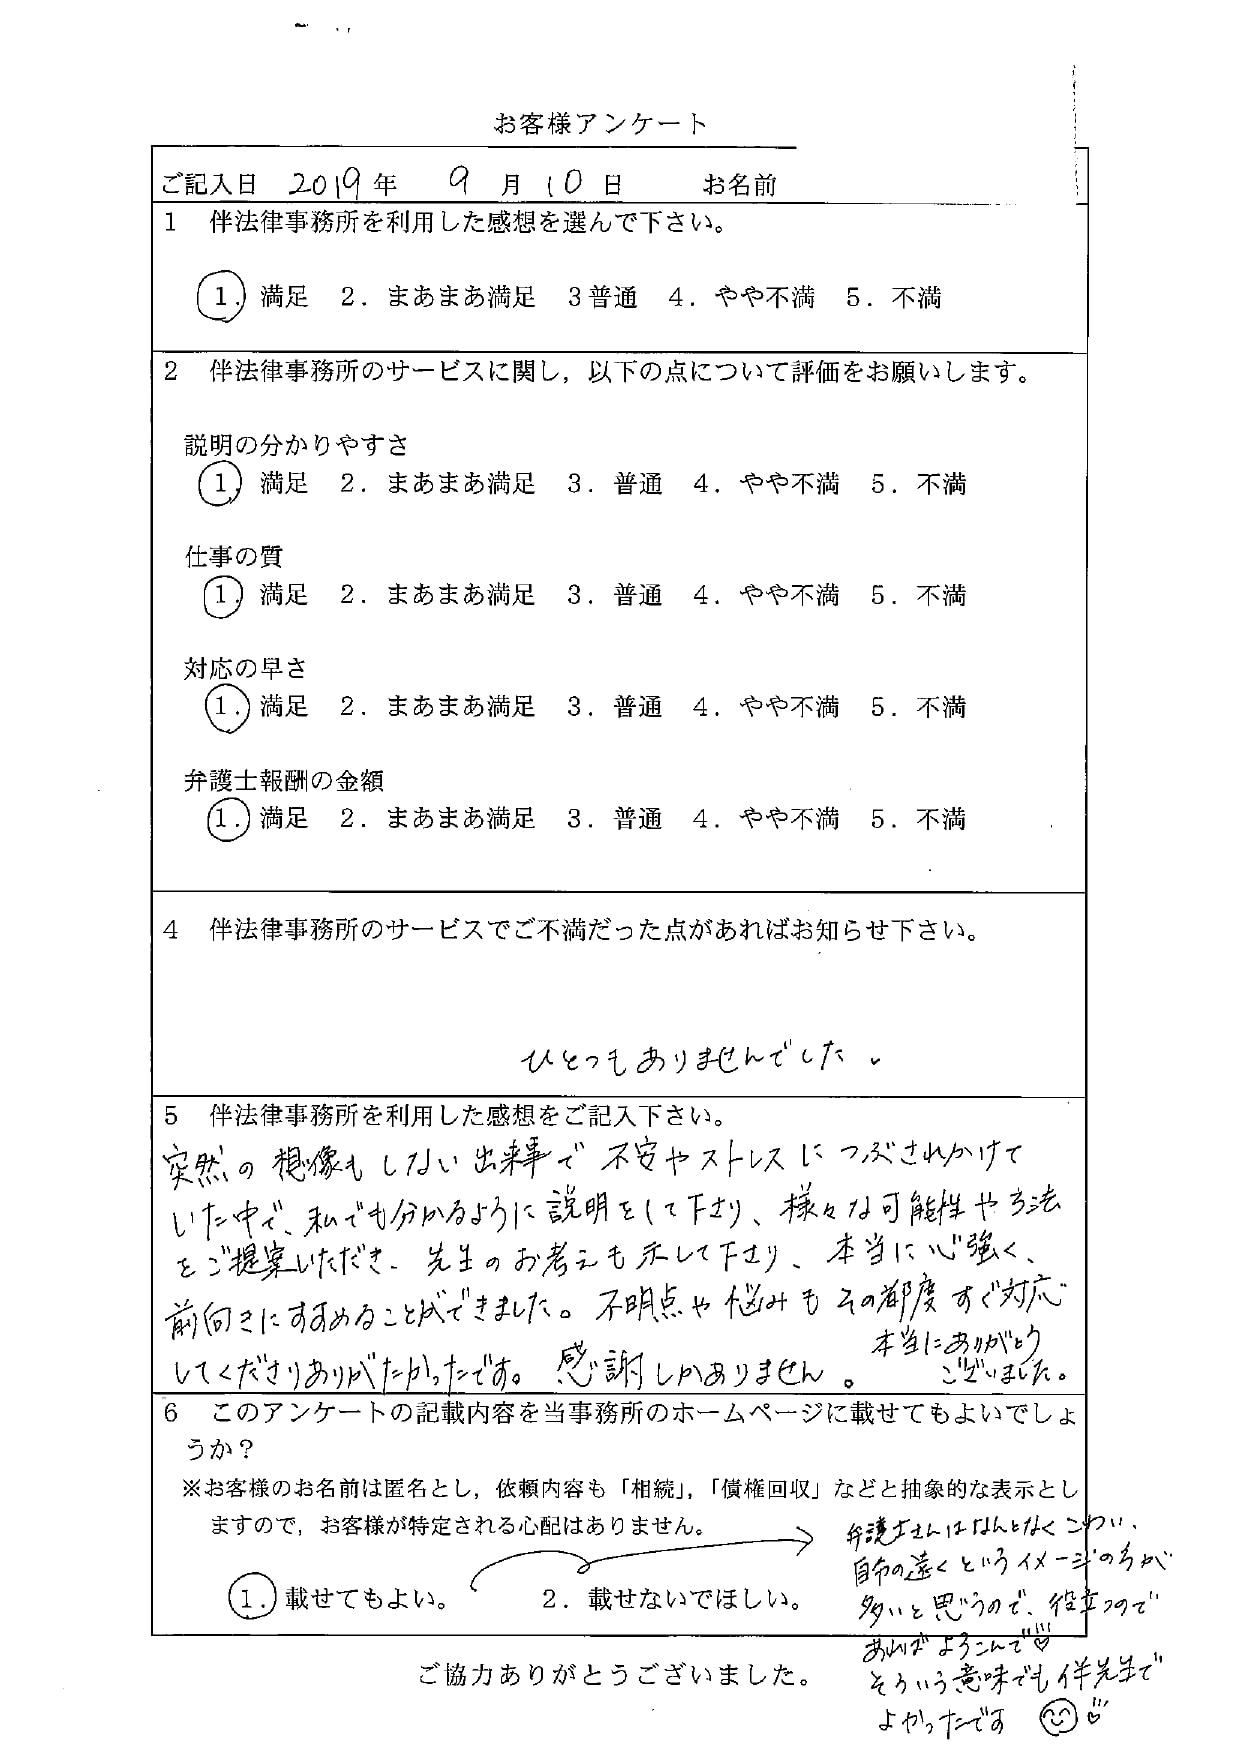 お客様アンケート
ご記入日 2019年 9月10日 お名前
1 伴法律事務所を利用した感想を選んで下さい。
1. 満足 2. まあまあ満足 3普通 4. やや不満 5. 不満
2 伴法律事務所のサービスに関し，以下の点について評価をお願いします。
説明の分かりやすさ
1 満足 2. まあまあ満足 3. 普通 4. やや不満 5. 不満
仕事の質
1 満足 2. まあまあ満足 3. 普通 4. やや不満 5. 不満
対応の早さ
1. 満足 2. まあまあ満足 3. 普通 4. やや不満 5. 不満
弁護士報酬の金額
1. 満足 2. まあまあ満足 3. 普通 4. やや不満 5. 不満
4 伴法律事務所のサービスでご不満だった点があればお知らせ下さい。
ひとつもありませんでした。
5 伴法律事務所を利用した感想をご記入下さい。
突然の想像もしない出来事で不安やストレスにつぶされかけて
いた中で、私でも分かるように説明をして下さり、様々な可能性や方法
をご提案いただき、先生のお考えも示して下さり、本当に心強く、
前向きにすすめることができました。不明点や悩みもその都度すぐ対応
してくださりありがたかったです。感謝しかありません。
本当にありがとう
ございました。
6 このアンケートの記載内容を当事務所のホームページに載せてもよいでしょ
うか？
※お客様のお名前は匿名とし，依頼内容も「相続」，「債権回収」などと抽象的な表示とし
ますので，お客様が特定される心配はありません。
1. 載せてもよい。 2. 載せないでほしい。
弁護士さんはなんとなくこわい、
自分の遠くというイメージの方が
多いと思うので、役立つので
あればよろこんで♡
そういう意味でも伴先生で
よかったです ☺♡
ご協力ありがとうございました。